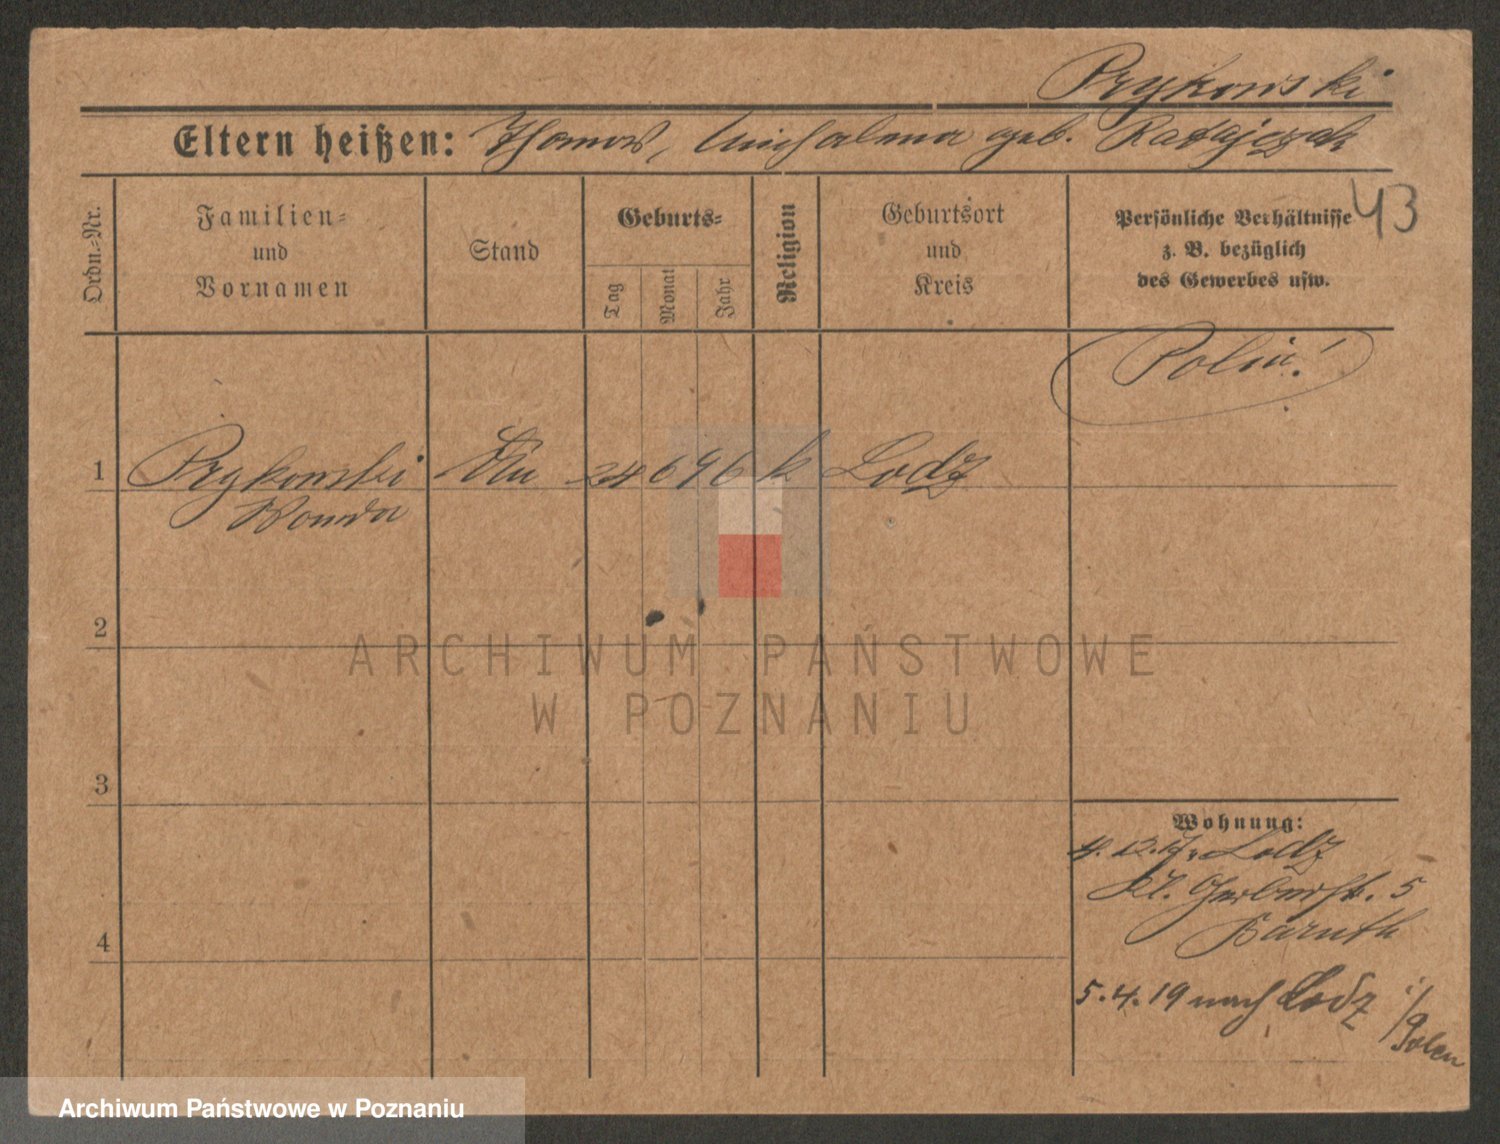 Prykowski
Eltern heißen: Thomas, Michalina geb. Ratajczak
43
Ordn.=Nr.
Familien=
und
Vornamen
Stand
Geburts=
Tag
Monat
Jahr
Religion
Geburtsort
und
Kreis
Persönliche Verhältnisse
z. B. bezüglich
des Gewerbes usw.
Polin!
1 Prykowski 24 6 96 k Lodz
Wanda
2
ARCHIWUM PAŃSTWOWE
W POZNANIU
3
Wohnung:
4.12.17. Lodz
Kl. Gerberstr. 5
Baruth
4
5.4.19 nach Lodz i/Polen
Archiwum Państwowe w Poznaniu